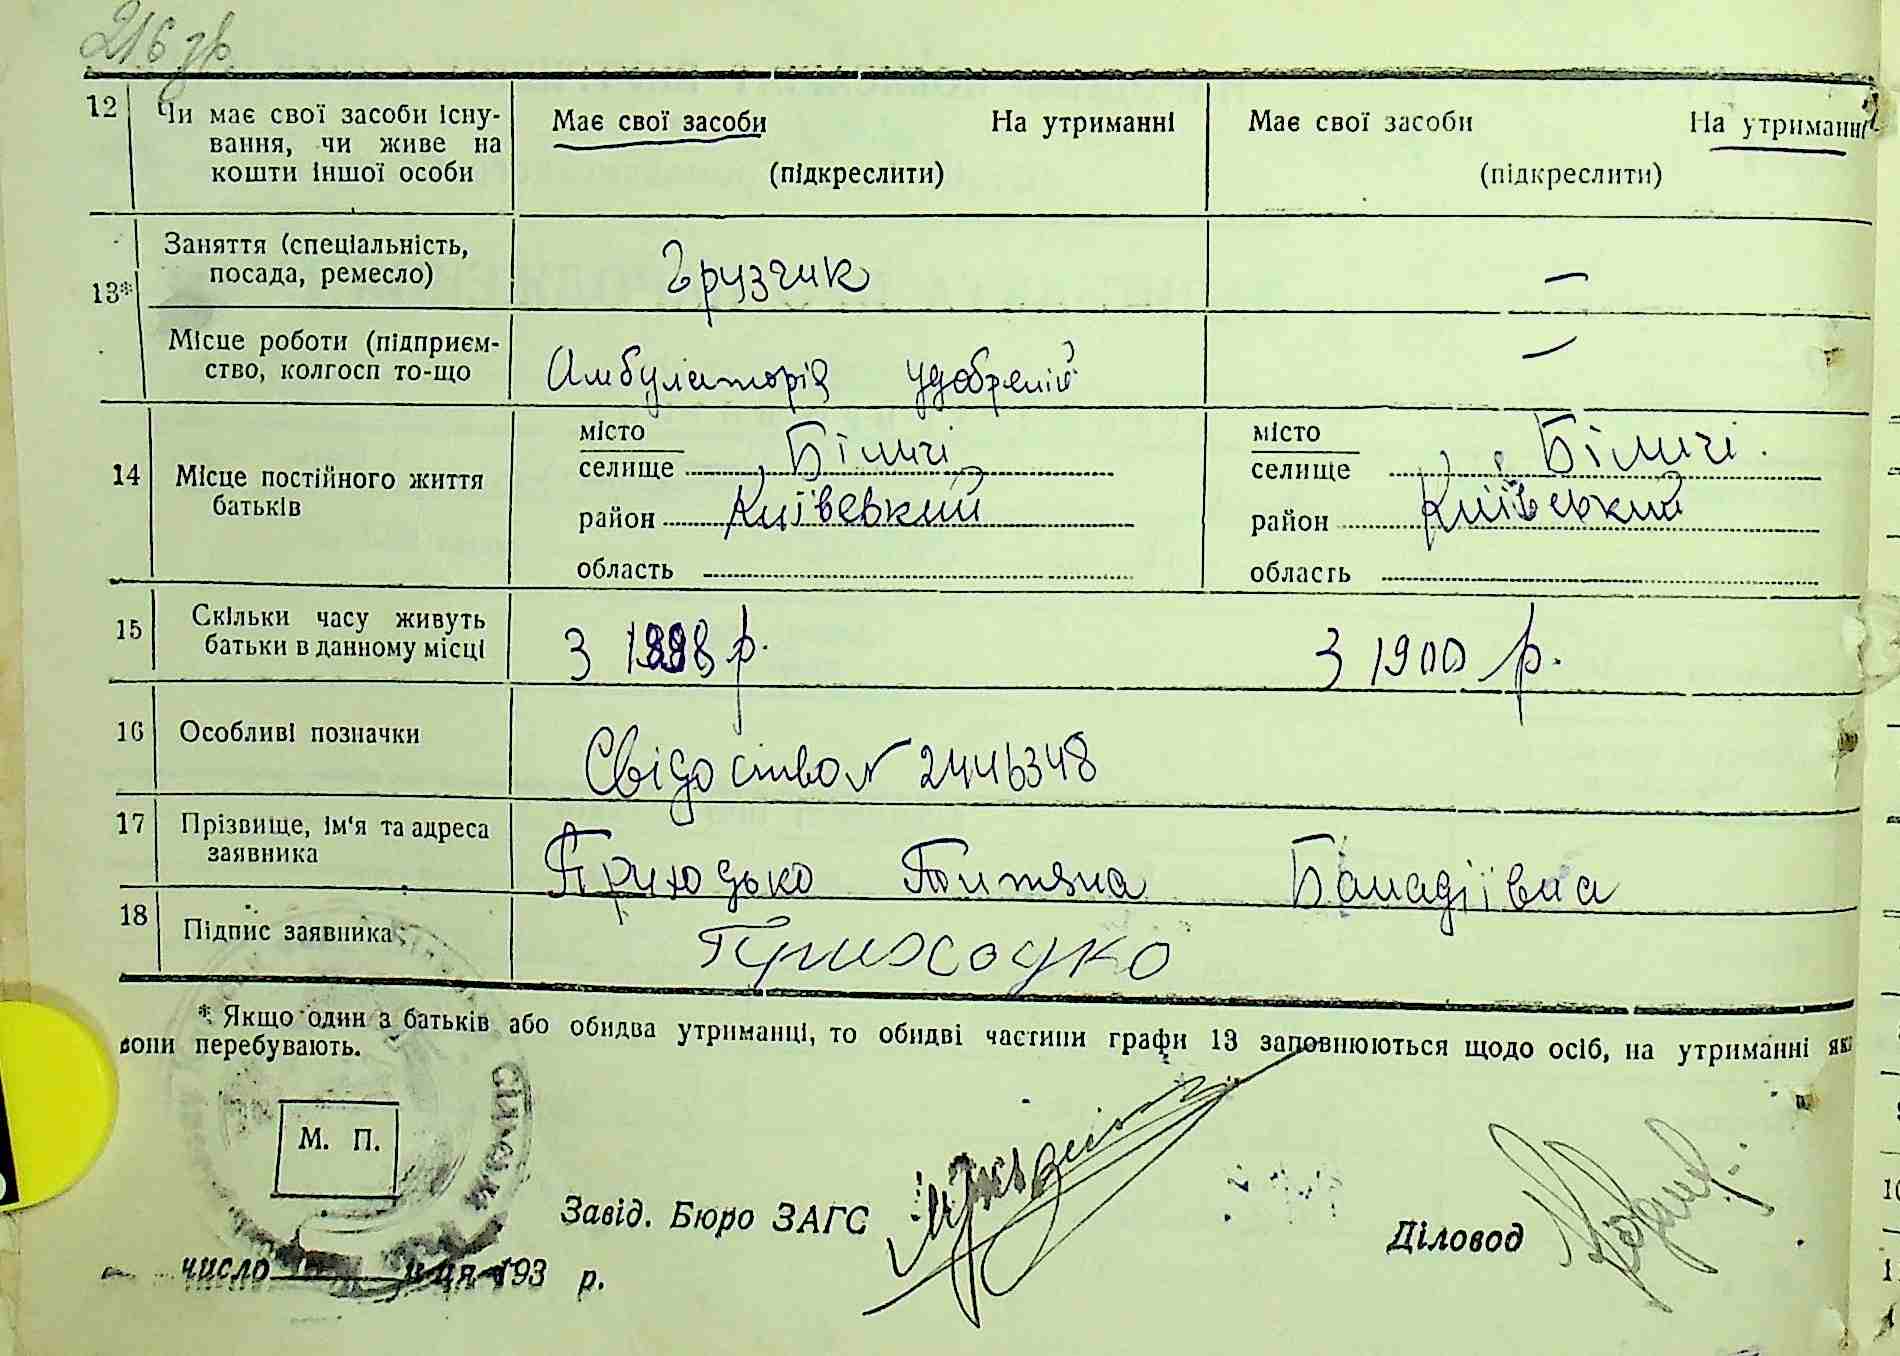 216 зв.
12 Чи має свої засоби існу-
вання, чи живе на
кошти іншої особи
Має свої засоби На утриманні
(підкреслити)
Має свої засоби На утриманні
(підкреслити)
13*
Заняття (спеціальність,
посада, ремесло)
Грузчик
—
Місце роботи (підприєм-
ство, колгосп то-що
Амбулаторія удобреній
—
14 Місце постійного життя
батьків
місто
селище Біличі
район Київський
область
місто
селище Біличі.
район Київський
область
15 Скільки часу живуть
батьки в данному місці
З р.
З 1900 р.
16 Особливі позначки
Свідоство № 2446348
17 Прізвище, ім'я та адреса
заявника
Приходько Титяна
18 Підпис заявника
Приходко
* Якщо один з батьків або обидва утриманці, то обидві частини графи 13 заповнюються щодо осіб, на утриманні яки
вони перебувають.
М. П.
Завід. Бюро ЗАГС
Діловод
число м-ця 193 р.